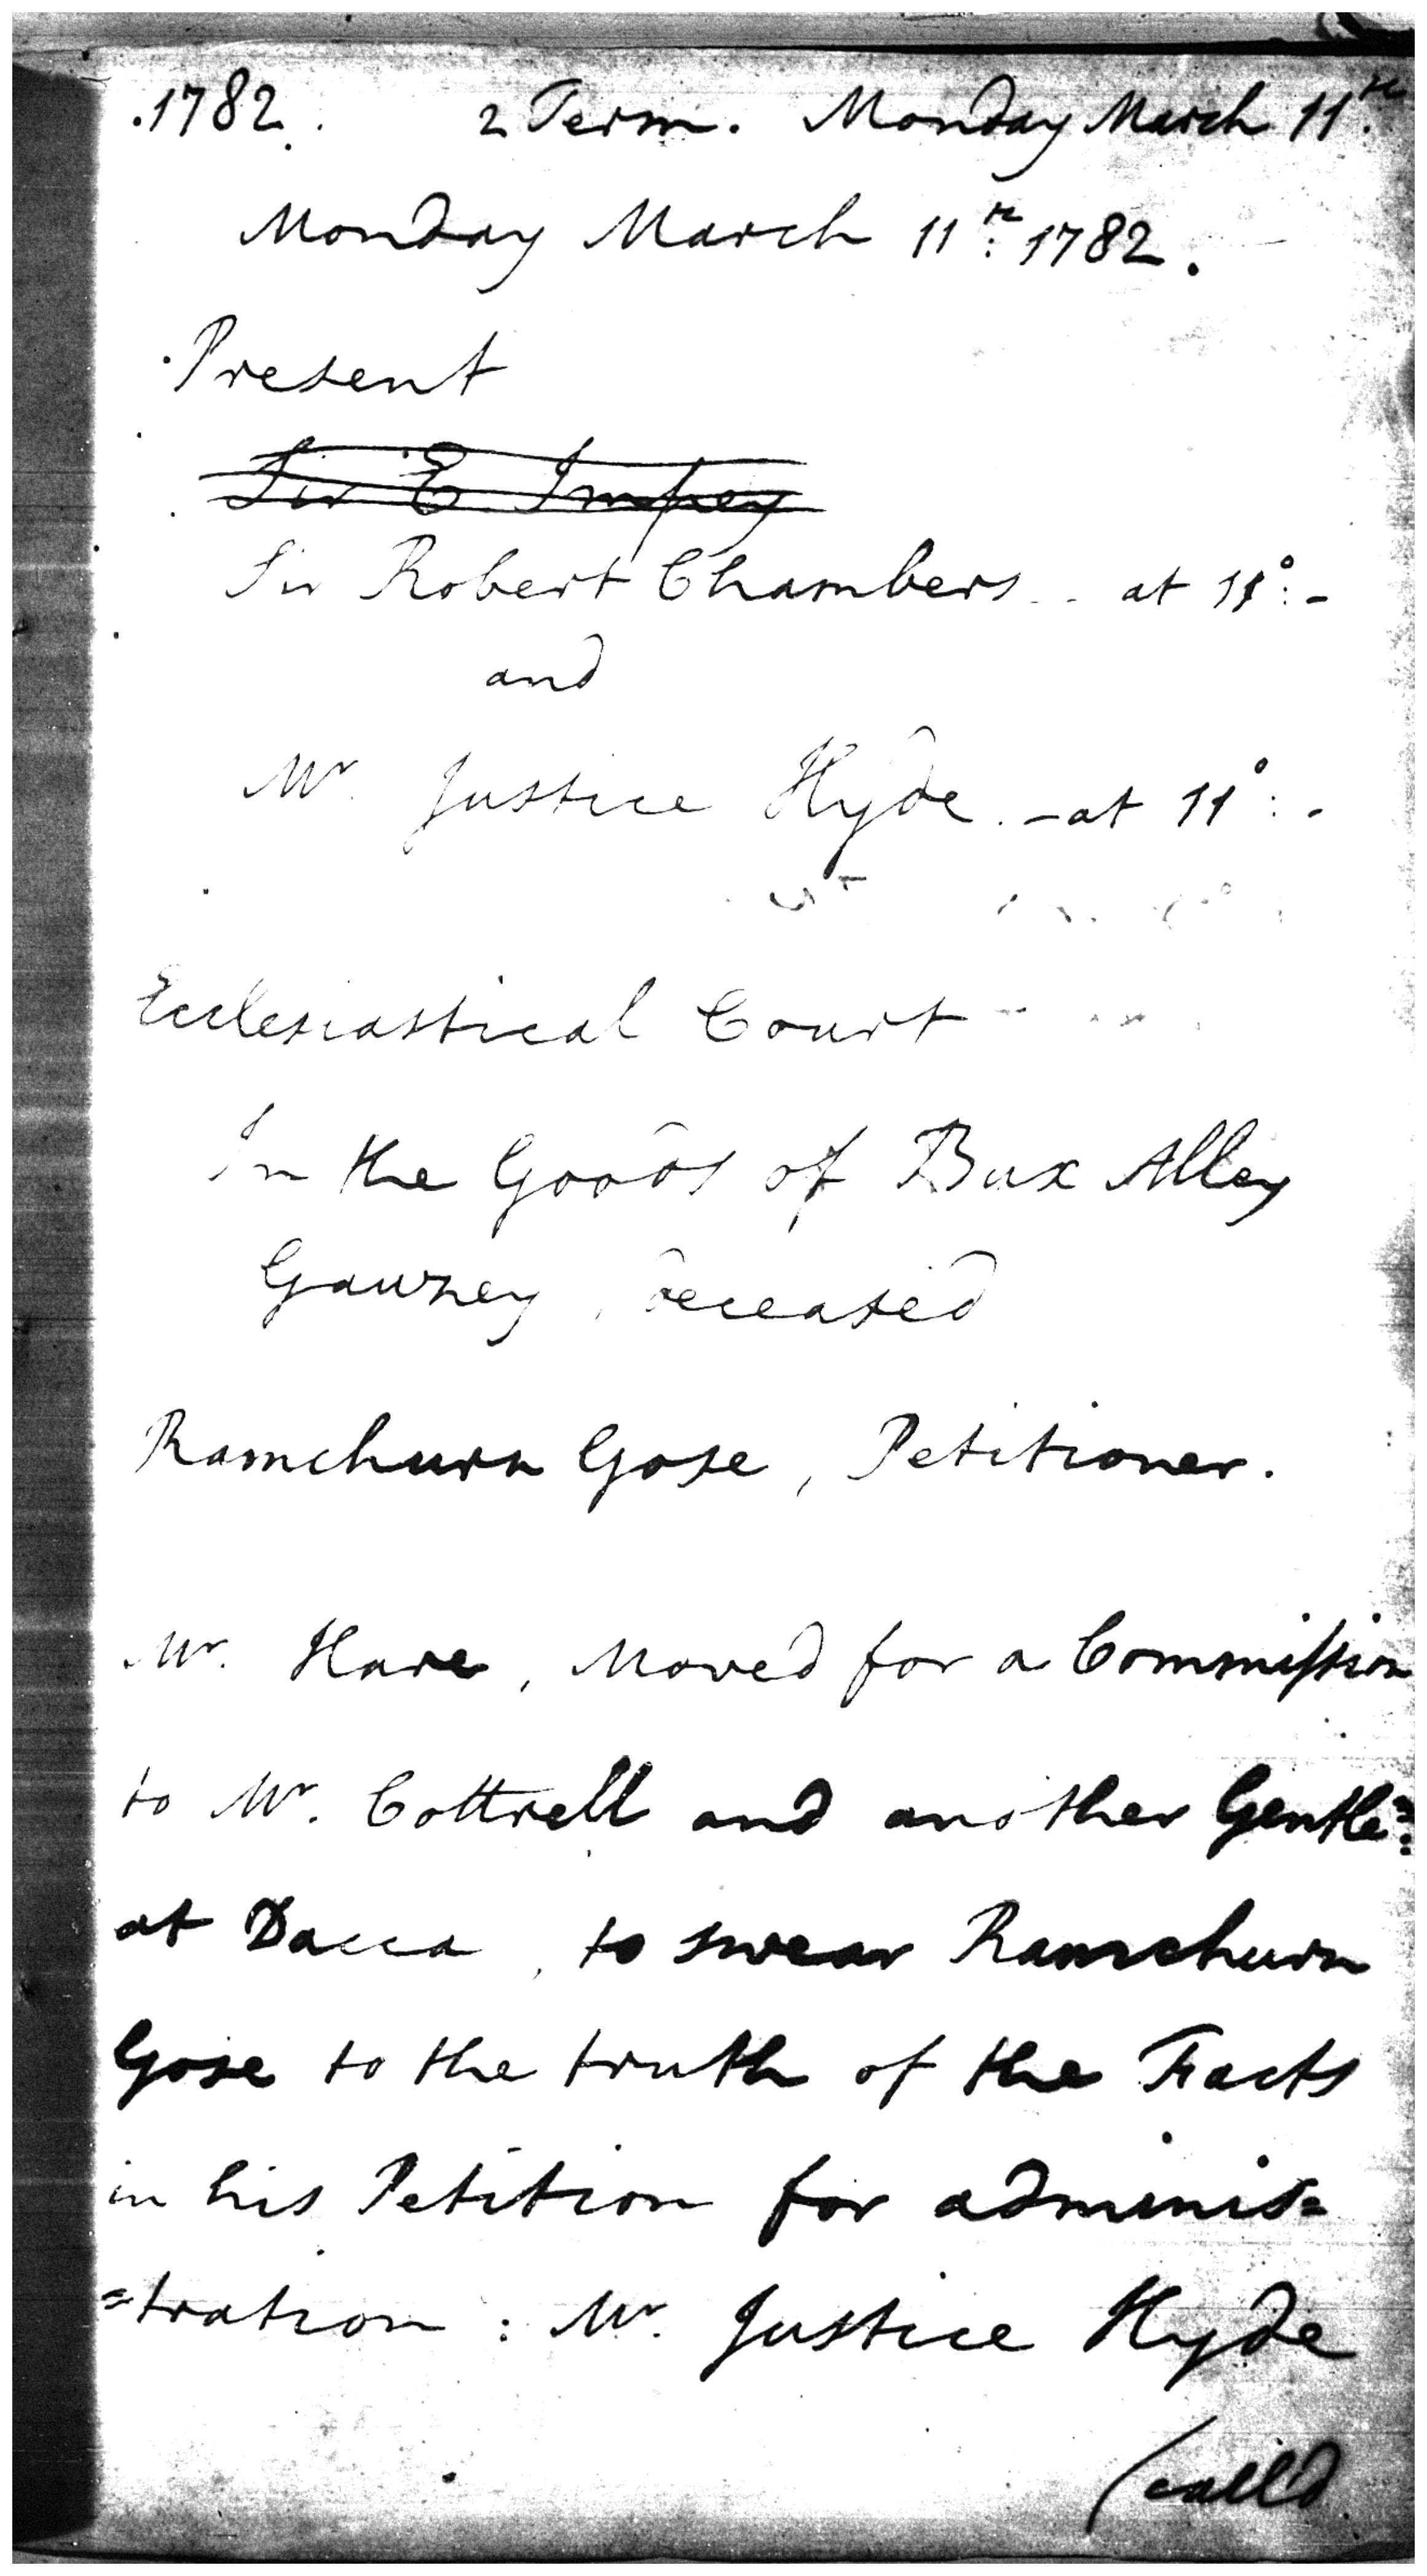 1782. 2 Term. Monday March 11th.
Monday March 11th: 1782.
Present
Sir E Impey
Sir Robert Chambers -- at 11°:-
and
Mr. Justice Hyde. - at 11°:-
Ecclesiastical Court
In the Goods of Bux Alley
Gawney, deceased
Ramchurn Gose, Petitioner.
Mr. Hare, Moved for a Commission
to Mr. Cottrell and another Gentlen:
at Dacca, to swear Ramchurn
Gose to the truth of the Facts
in his Petition for adminis=
=tration: Mr. Justice Hyde
(calld